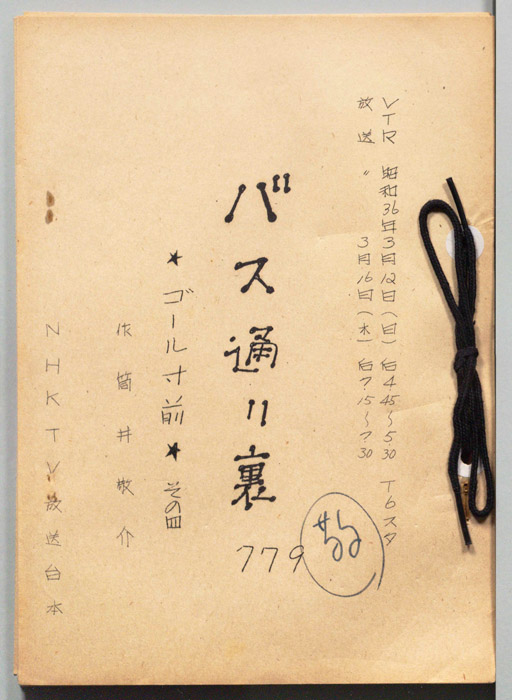 VTR 昭和36年3月12日(日)后4.45〜5.30 T6スタ
放送 〃 3月16日(木)后7.15〜7.30
バス通り裏
779
敬
★ゴール寸前★その四
作 筒井敬介
NHKTV放送台本